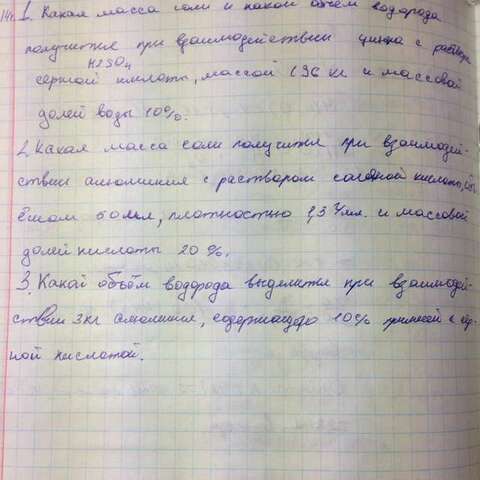 14г. 1. Какая масса соли и какой объём водорода
получится при взаимодействии цинка с раствором
H2SO4
серной кислоты, массой 196 кг и массовой
долей воды 10%.
2. Какая масса соли получится при взаимодей-
ствии алюминия с раствором соляной кислоты, объ-
ёмом 50 мл, плотностью 1,3 г/мл. и массовой
долей кислоты 20%.
3. Какой объём водорода выделится при взаимодей-
ствии 3кг алюминия, содержащего 10% примесей с сер-
ной кислотой.